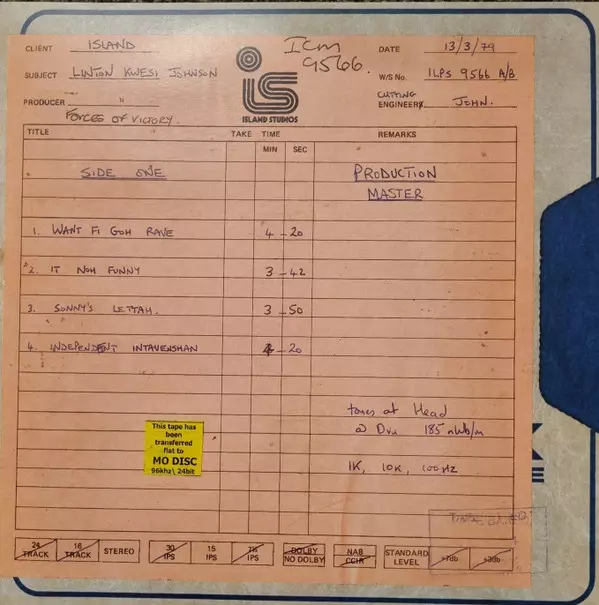 CLIENT ISLAND
ICM 9566.
DATE 13/3/79
SUBJECT LINTON KWESI JOHNSON
W/S No. ILPS 9566 A/B
PRODUCER "
CUTTING
ENGINEER JOHN.
iS
ISLAND STUDIOS
FORCES OF VICTORY.
TITLE TAKE TIME REMARKS
MIN SEC
SIDE ONE PRODUCTION
MASTER
1. WANT FI GOH RAVE 4 - 20
2. IT NOH FUNNY 3 - 42
3. SONNY'S LETTAH. 3 - 50
4. INDEPENDENT INTAVENSHAN 4 - 20
tones at Head
@ 0vu 185 nWb/m
1K, 10K, 100Hz
This tape has
been
transferred
flat to
MO DISC
96khz\ 24bit
24 TRACK 16 TRACK STEREO 30 IPS 15 IPS 7½ IPS DOLBY NO DOLBY NAB CCIR STANDARD LEVEL +3db